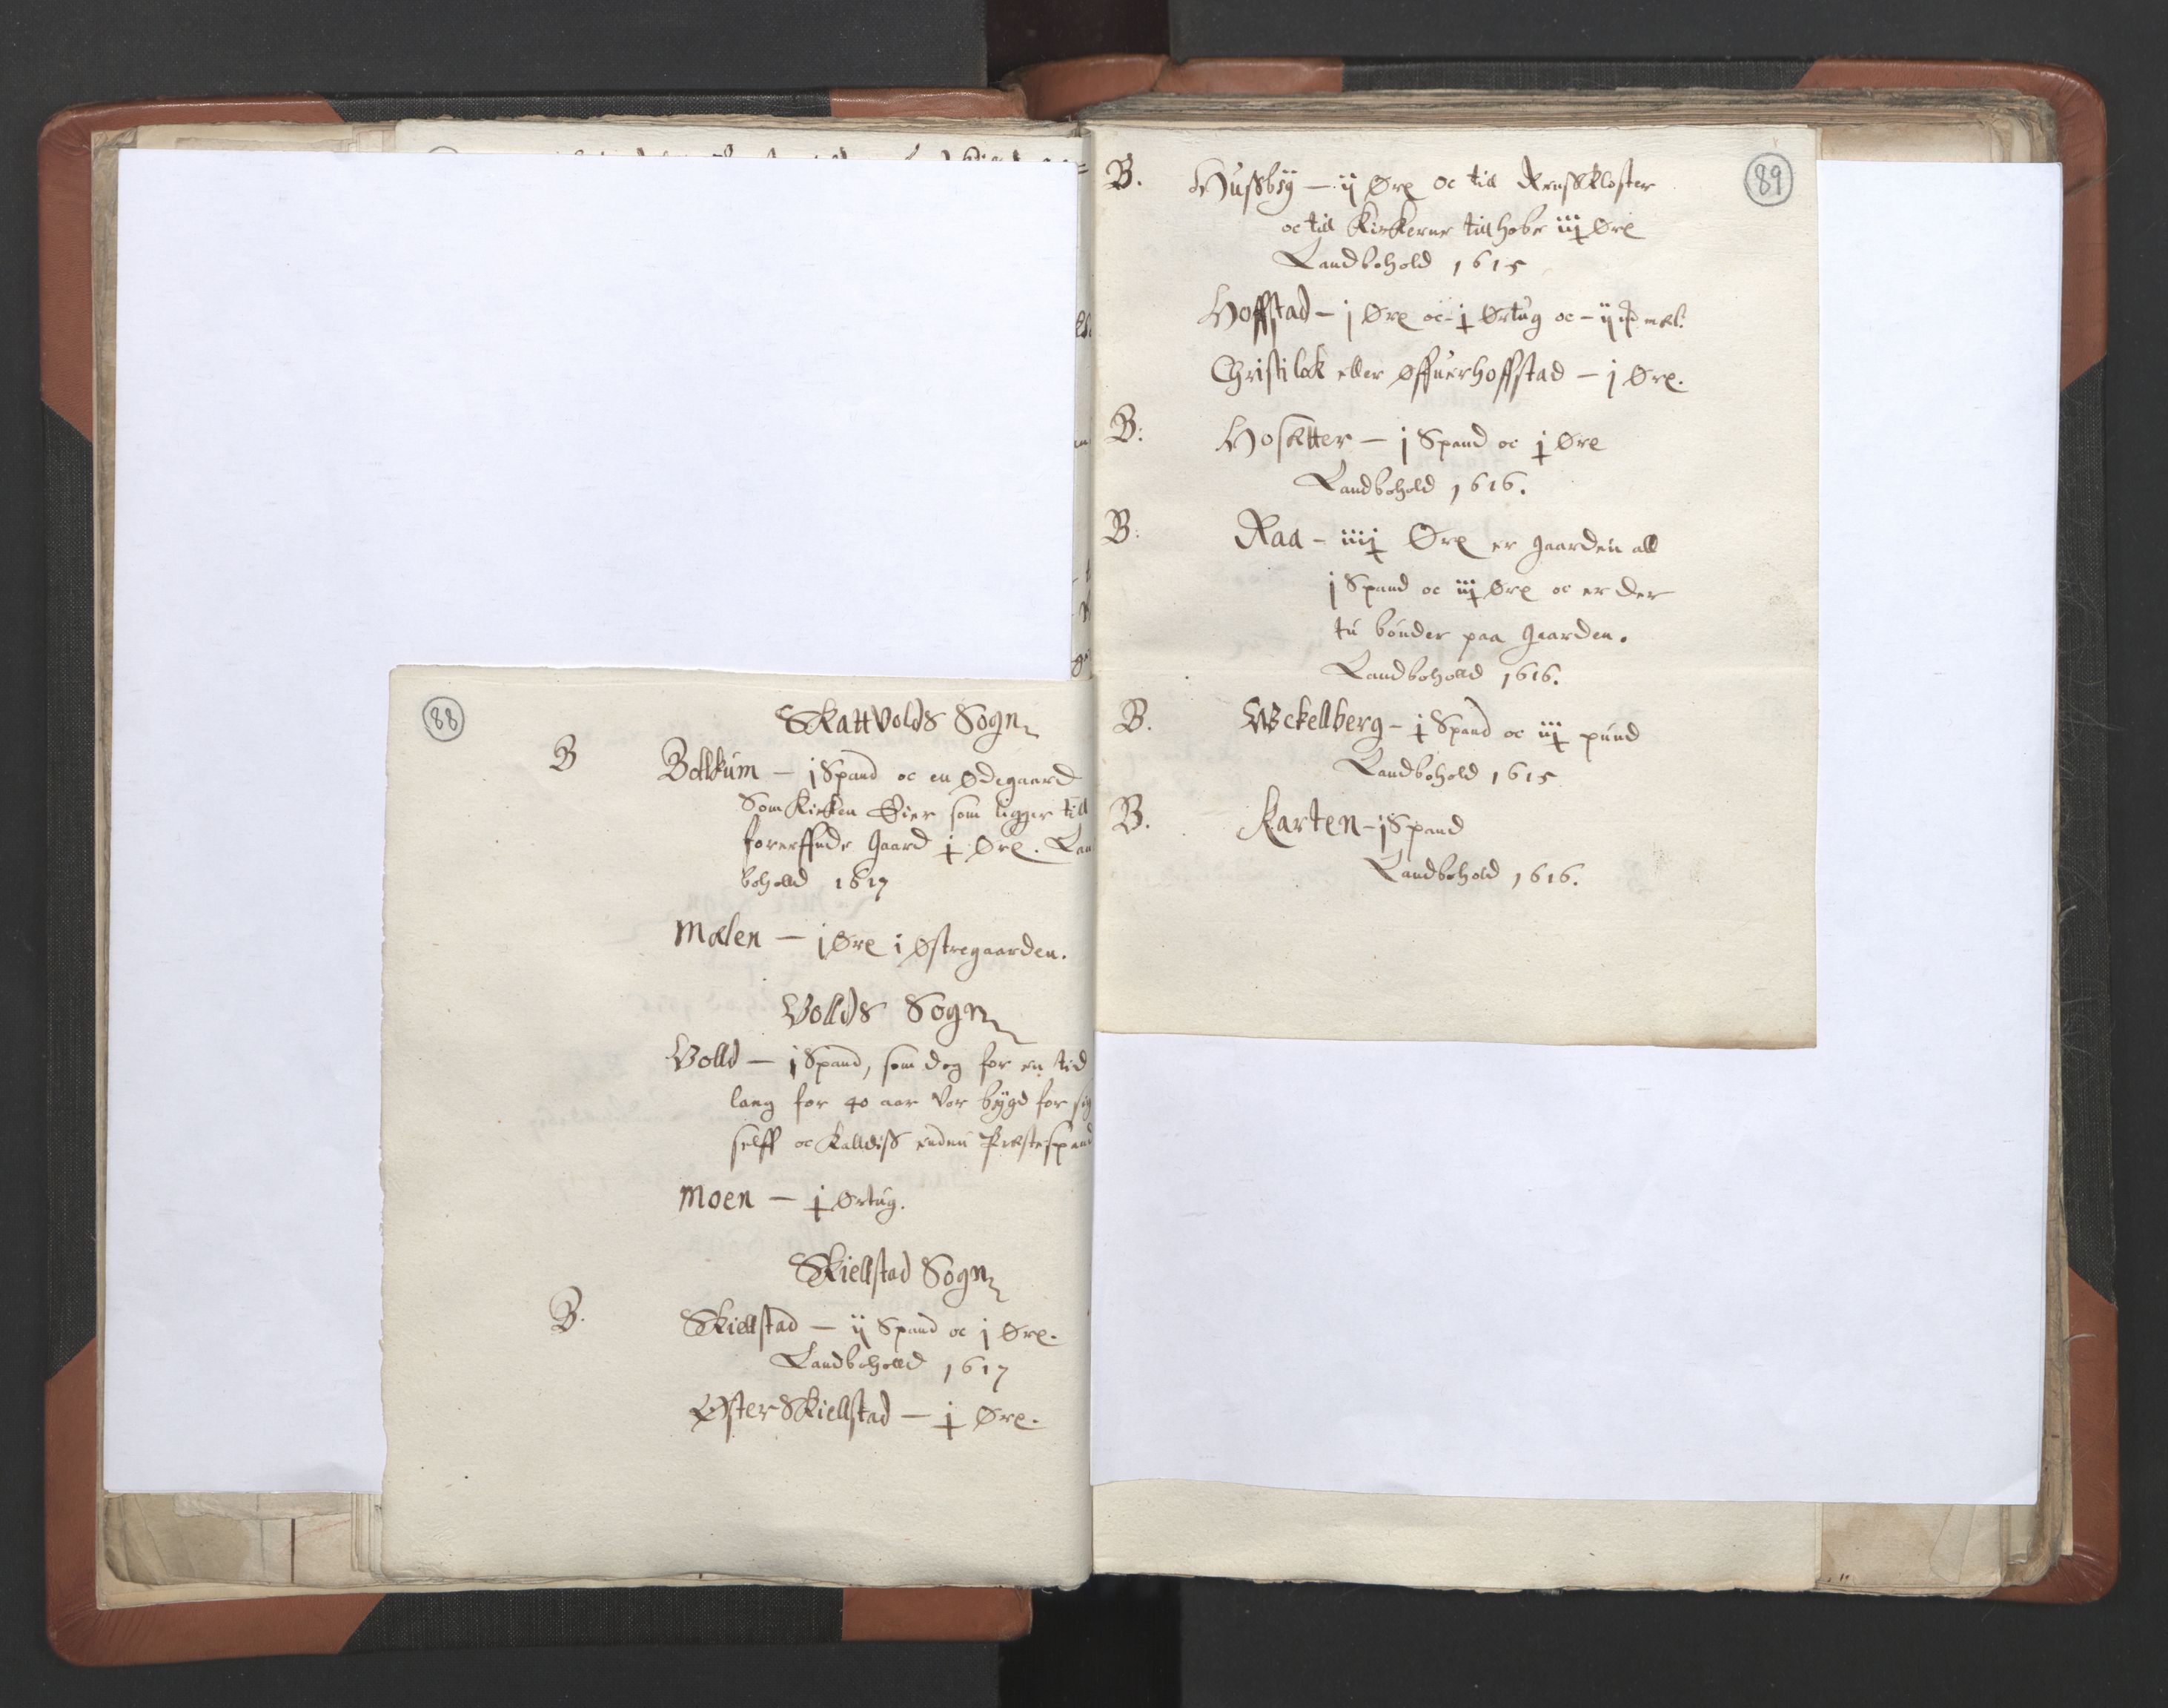 88
Skattvolds Sogn
B Bollkum — j Spand oc en ødegaard
Som Kircken Eier som ligger till
forneffnde gaard j Øre. Lan
boholld 1617
Mælen — j Øre i Østregaarden.
Vollds Sogn
Volld — j Spand, som dog for en tid
lang for 40 aar vor bygd for sig
selff oc kalldiss endnu Præstespand
Moen — j Ørtug.
Skiellstad Sogn
B. Skiellstad — ij Spand oc j Øre.
Landboholld 1617
Øster Skiellstad — j Øre.
89
B. Hussby — ij Øre oc till Rensskloster
oc till Kirkerne tillhobe iij Øre
Landbohold 1615
Hoffstad — j Øre oc j Ørtug oc — ij
Christilok eller Øffuerhoffstad — j Øre.
B: Hosetter — j Spand oc j Øre
Landbohold 1616.
B: Raa — iiij Øre er gaarden all
j Spand oc iij Øre oc er der
tu bønder paa gaarden.
Landboholld 1616.
B. Weckellberg — j Spand oc iij pund
Landbohold 1615
B. Karten — j Spand
Landbohold 1616.